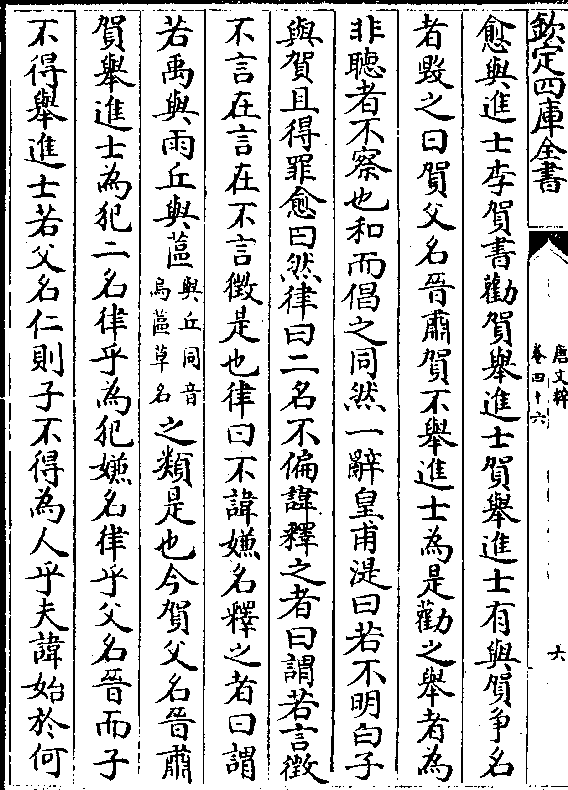 欽定四庫全書
唐文粹
卷四十六
六
愈與進士李賀書勸賀舉進士賀舉進士有與賀爭名
者毀之曰賀父名晉肅賀不舉進士為是勸之舉者為
非聽者不察也和而倡之同然一辭皇甫湜曰若不明白子
與賀且得罪愈曰然律曰二名不偏諱釋之者曰謂若言徵
不言在言在不言徵是也律曰不諱嫌名釋之者曰謂
若禹與雨丘與蓲與丘同音烏蓲草名之類是也今賀父名晉肅
賀舉進士為犯二名律乎為犯嫌名律乎父名晉而子
不得舉進士若父名仁則子不得為人乎夫諱始於何